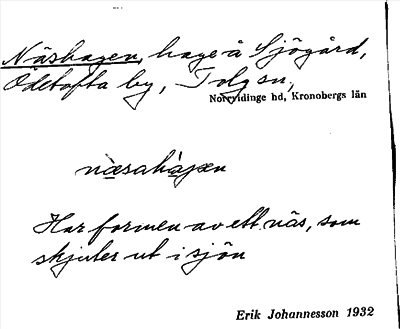 Näshagen, hage å Sjögård,
Ödetofta by, Tolg sn,
Norrvidinge hd, Kronobergs län
næ̀sahàgen
Har formen av ett näs, som
skjuter ut i sjön
Erik Johannesson 1932